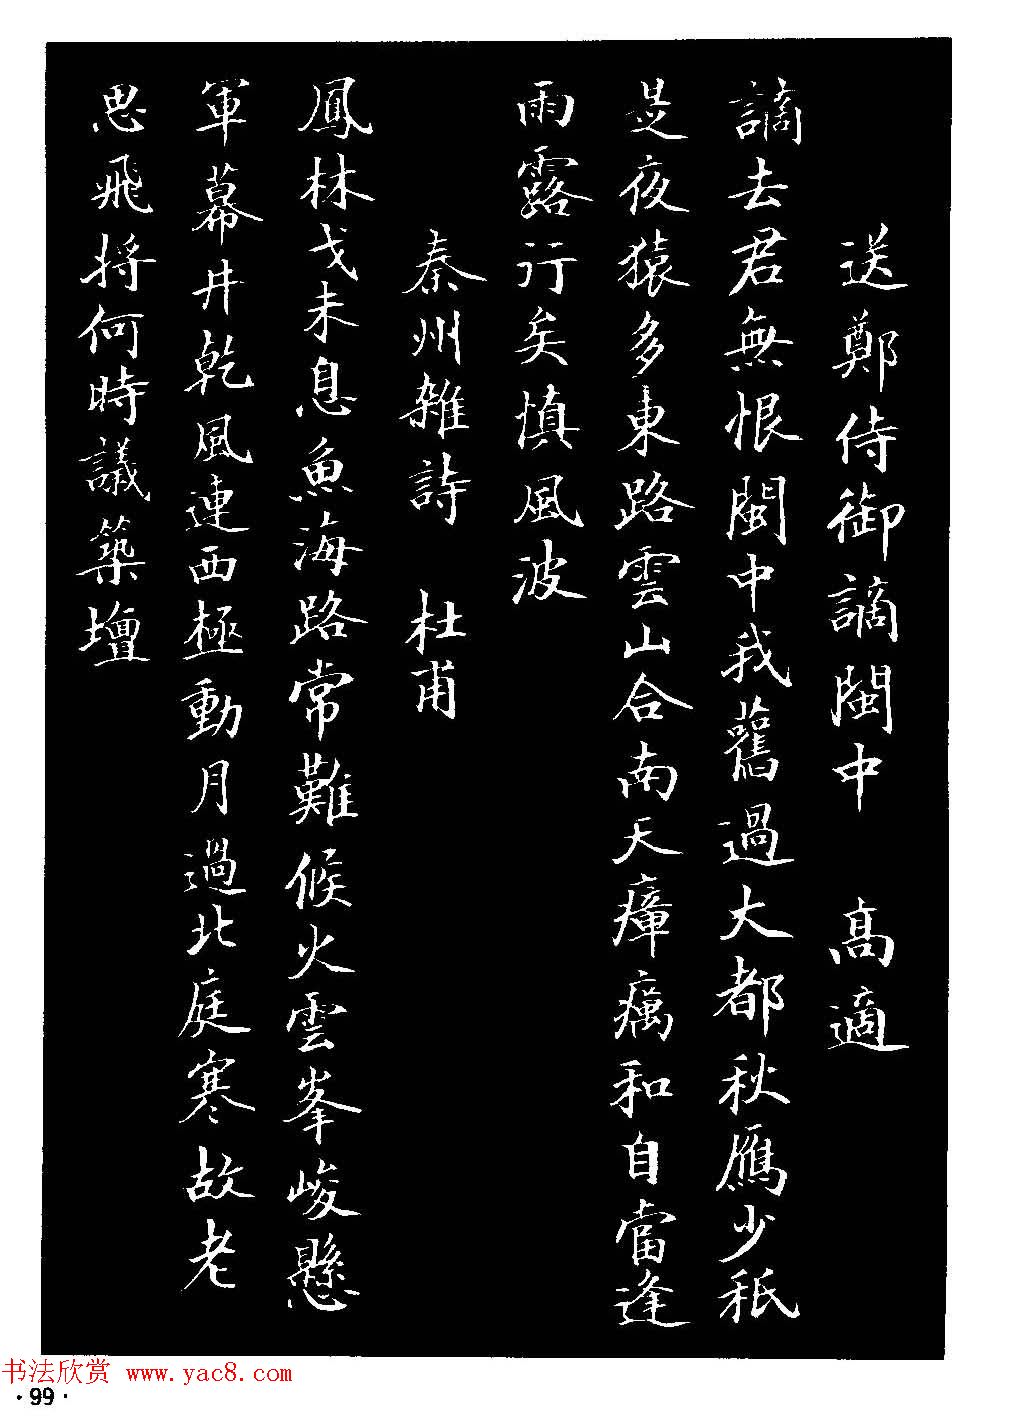 送鄭侍御謫閩中 高適
謫去君無恨閩中我舊過大都秋鴈少秖
是夜猿多東路雲山合南天瘴癘和自當逢
雨露行矣慎風波
秦州雜詩 杜甫
鳳林戈未息魚海路常難候火雲峯峻懸
軍幕井乾風連西極動月過北庭寒故老
思飛將何時議築壇
书法欣赏 www.yac8.com
·99·